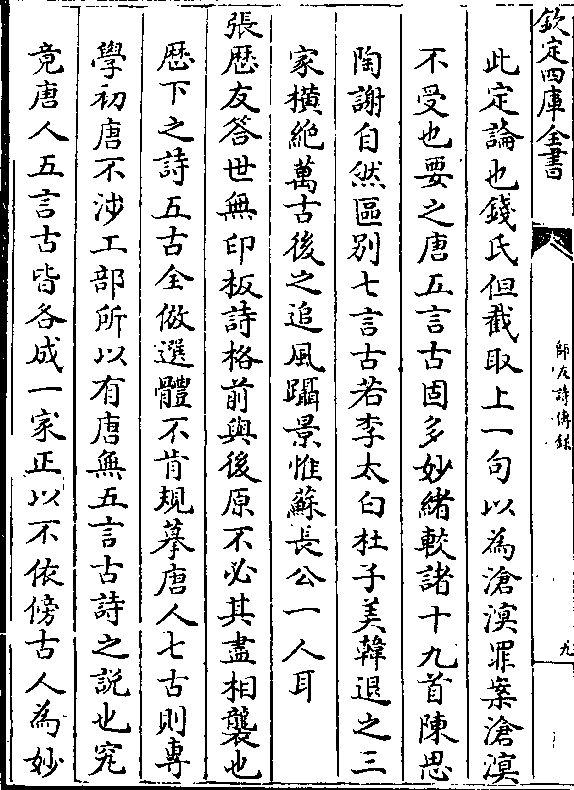 欽定四庫全書
師友詩傳録
九
此定論也錢氏但截取上一句以為滄溟罪案滄溟
不受也要之唐五言古固多妙緒較諸十九首陳思
陶謝自然區别七言古若李太白杜子美韓退之三
家横絶萬古後之追風躡景惟蘇長公一人耳
張歴友答世無印板詩格前與後原不必其盡相襲也
歴下之詩五古全倣選體不肯規摹唐人七古則專
學初唐不涉工部所以有唐無五言古詩之説也究
竟唐人五言古皆各成一家正以不依傍古人為妙